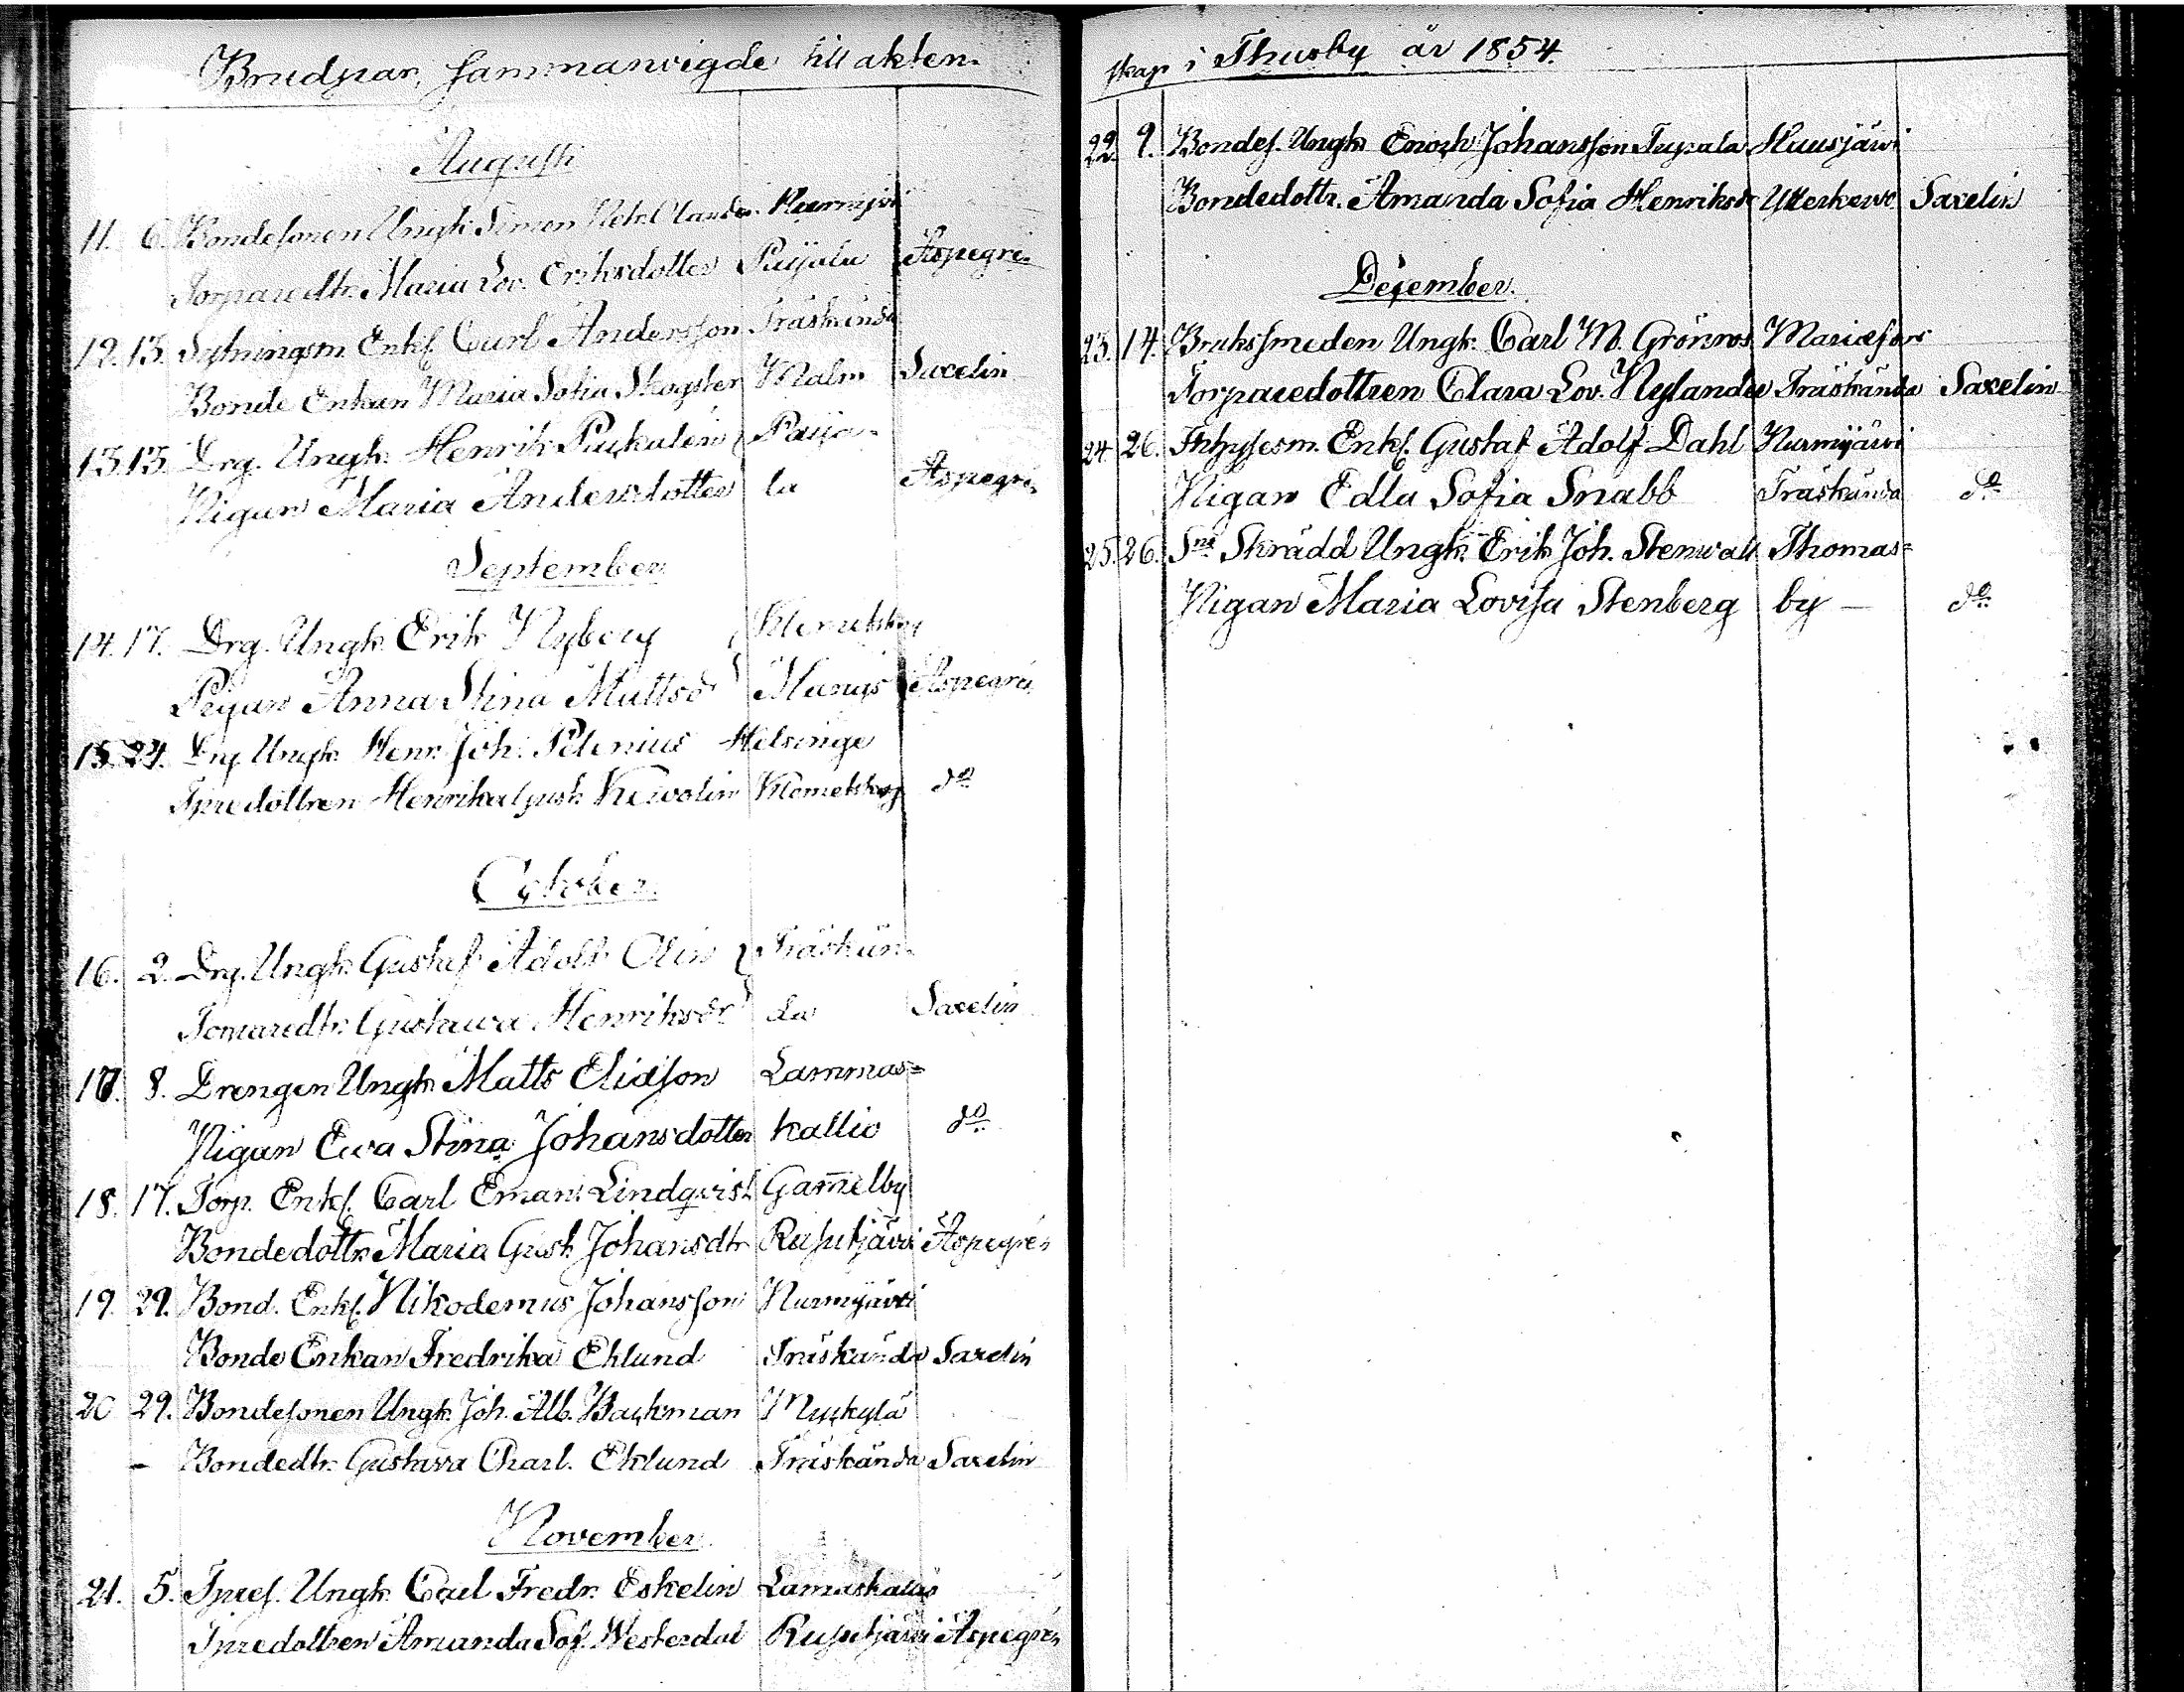 Brudpar, sammanvigde till akten-
Augusti
11. 6. Bondesonen Ungk. Simon Nurmijervi
Torparedtr. Maria Lov. Eriksdotter Paijala Aspegrén
12. 13. Sytningsm. Enkl. Carl Andersson Träskända
Bonde Enkan Maria Sofia Skogster Malm Saxelin
13. 13. Drg. Ungk. Henrik Paija-
Pigan Maria Andersdotter la Aspegrén
September
14. 17. Drg. Ungk. Erik Nyberg Klemetskog
Pigan Anna Stina Mattsdr Aspegrén
15. 24. Drg Ungk. Henr. Joh. Helsinge
Tpredottren Henrika Gust. Kewolin Klemetskog do
October
16. 2. Drg. Ungk. Gustaf Adolf Olin Träskän-
Torparedtr. Gustawa Henriksdr da Saxelin
17. 8. Drengen Ungk. Matts Eliasson Lammas=
Pigan Ewa Stina Johansdotter kallio do
18. 17. Torp. Enkl. Carl Eman. Lindqvist Gam̄elby
Bondedottr. Maria Gust. Johansdtr Rusutjärvi Aspegrén
19. 29. Bond. Enkl. Nikodemus Johansson Nurmijärvi
Bonde Enkan Fredrika Eklund Träskända Saxelin
20 29. Bondesonen Ungk. Joh. Alb. Backman Myckylä
- Bondedtr. Gustava Charl. Eklund Träskända Saxelin
November
21. 5. Tpres. Ungk. Carl Fredr. Eskelin Lamaskallio
Tpredottren Amanda Sof. Westerdal Rusutjärvi Aspegrén
skap i Thusby år 1854.
22. 9. Bondes. Ungk. Enoch Johansson Tupala Husjärvi
Bondedottr. Amanda Sofia Henriksdr Ytterkervo Saxelin
December.
23. 14. Brukssmeden Ungk. Carl M. Grönros Mariæfors
Torparedottren Clara Lov. Nylander Träskända Saxelin
24. 26. Inhysesm. Enkl. Gustaf Adolf Dahl Nurmijärvi
Pigan Edla Sofia Snabb Träskända do
25. 26. Sn. Skrädd Ungk. Erik Joh. Stenwall Thomas=
Pigan Maria Lovisa Stenberg by — do